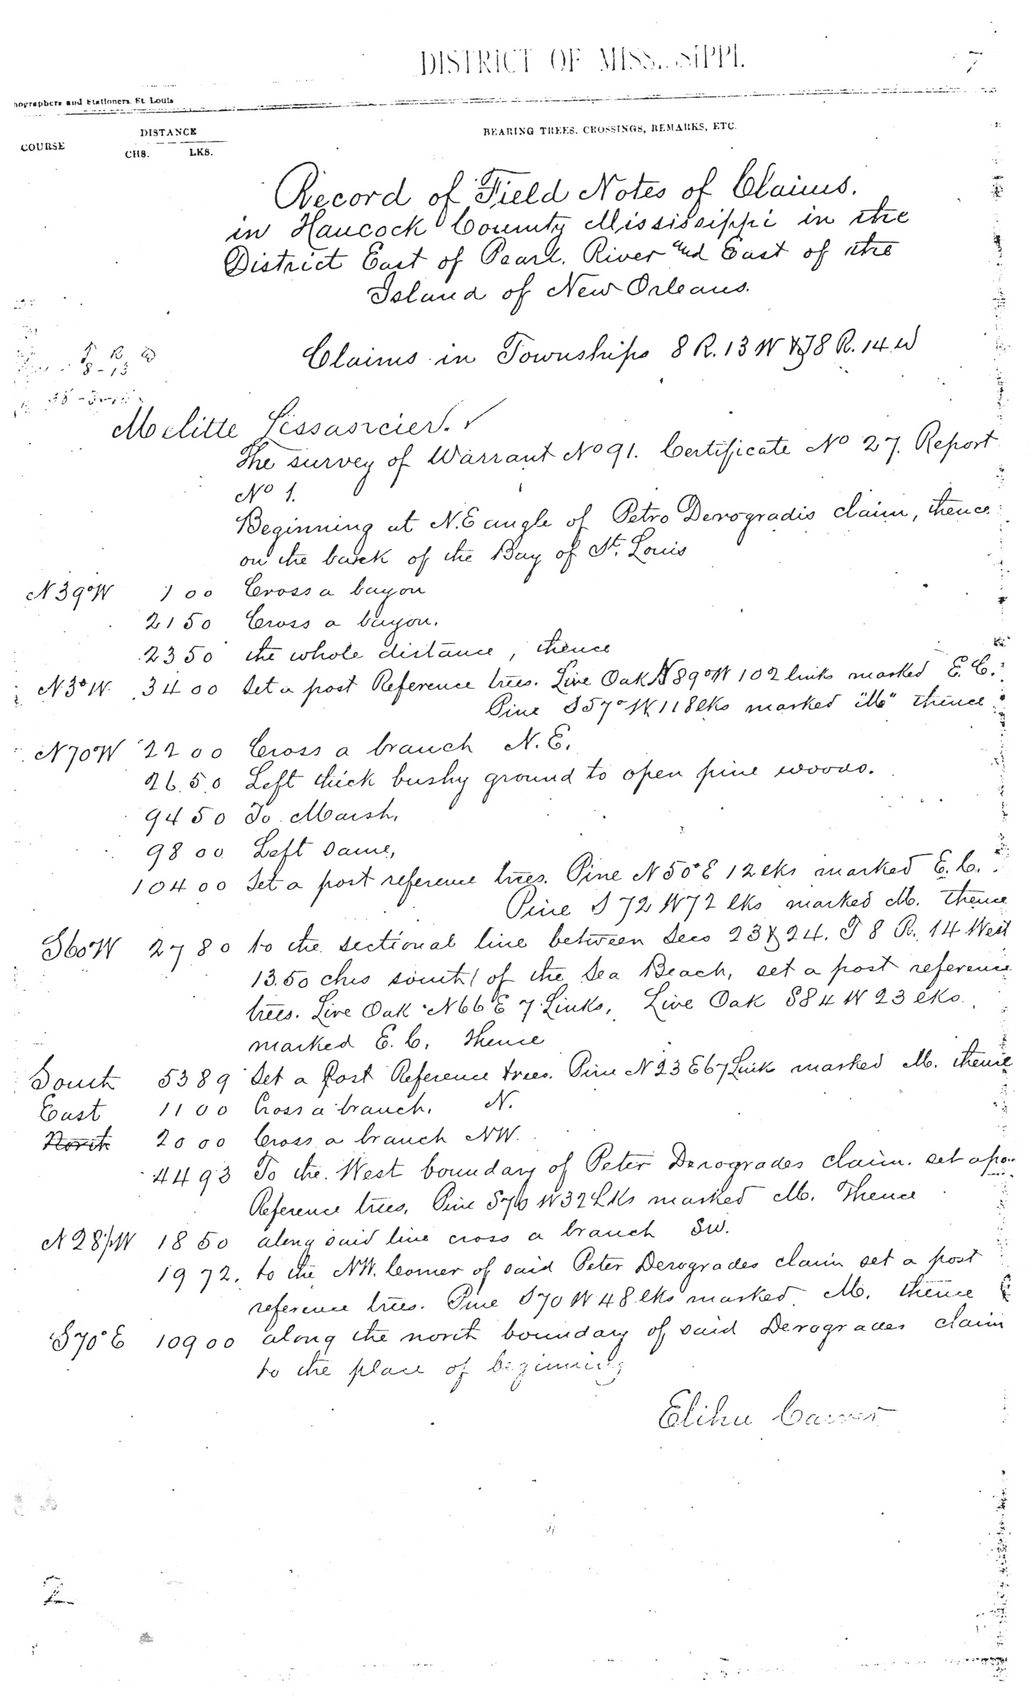 DISTRICT OF MISSISSIPPI. 7
nographers and Stationers, St. Louis
COURSE DISTANCE BEARING TREES, CROSSINGS, REMARKS, ETC.
CHS. LKS.
Record of Field Notes of Claims.
in Hancock County Mississippi in the
District East of Pearl River and East of the
Island of New Orleans.
T R W
8-13
Claims in Townships 8 R. 13 W & T8 R. 14 W
Melitte Lissascier. ✓
The survey of Warrant No 91. Certificate No 27. Report
No 1.
Beginning at N.E angle of Petro Derogradis claim, thence
on the back of the Bay of St. Louis
N39°W 1 00 Cross a bayou
21 50 Cross a bayou.
23 50 the whole distance, thence
N3°W 34 00 Set a post Reference trees. Live Oak N89°W 102 links marked E.C.
Pine S57°W 118lks marked "M" thence
N70W 22 00 Cross a branch N.E.
26.50 Left thick bushy ground to open pine woods.
94 50 To Marsh,
98 00 Left same,
104 00 Set a post reference trees. Pine N50°E 12lks marked E.C.
Pine S72W72 lks marked M. thence
S60W 27 80 to the sectional line between Secs 23 & 24. T 8 R. 14 West
13.50 chs south of the Sea Beach, set a post reference
trees. Live Oak N66°E 7 Links, Live Oak S84W 23lks.
marked E.C. thence
South 53 89 Set a Post Reference trees. Pine N23E67Link marked M. thence
East 11 00 Cross a branch. N.
North 20 00 Cross a branch NW.
44 93 To the West boundary of Peter Derogrades claim. set a po
Reference trees. Pine S70W32Lks marked M. Thence
N28½W 18 50 along said line cross a branch SW.
19 72. to the NW. Corner of said Peter Derogrades claim set a post
reference trees. Pine S70W48lks marked M. thence
S70°E 109 00 along the north boundary of said Derogrades claim
to the place of beginning
Elihu Carver
2